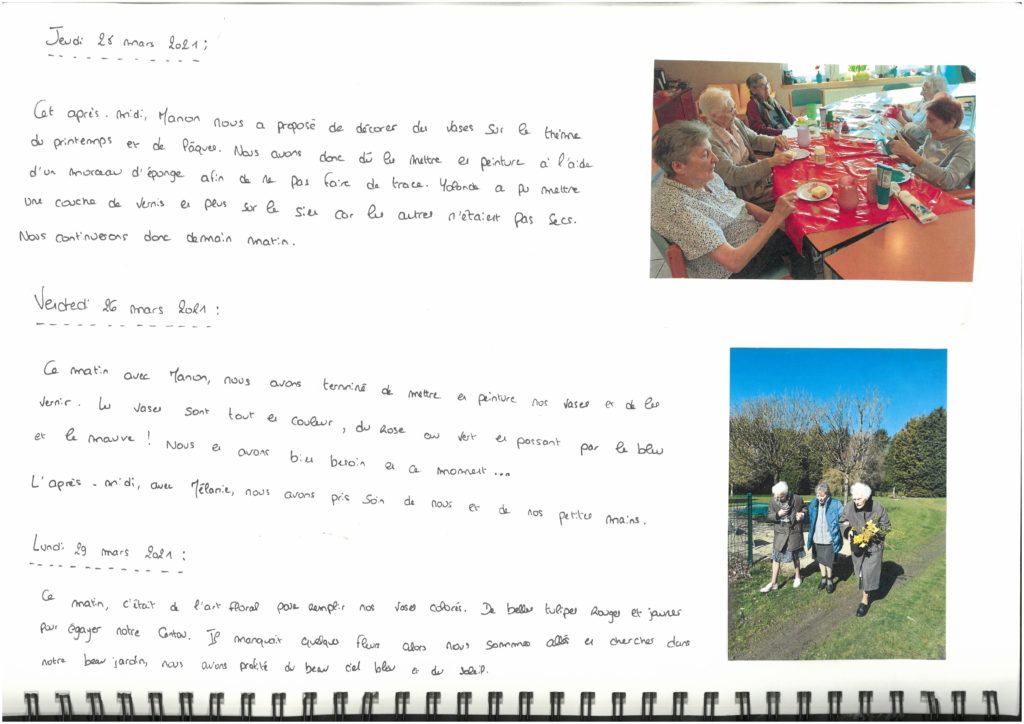 Jeudi 25 mars 2021 :
Cet après-midi, Manon nous a proposé de décorer des vases sur le thème
du printemps et de Pâques. Nous avons donc dû les mettre en peinture à l'aide
d'un morceau d'éponge afin de ne pas faire de trace. Yolande a pu mettre
une couche de vernis en plus sur le sien car les autres n'étaient pas secs.
Nous continuerons donc demain matin.
Vendredi 26 mars 2021 :
Ce matin avec Manon, nous avons terminé de mettre en peinture nos vases et de les
vernir. Les vases sont tout en couleur, du rose au vert en passant par le bleu
et le mauve ! Nous en avons bien besoin en ce moment...
L'après-midi, avec Mélanie, nous avons pris soin de nous et de nos petites mains.
Lundi 29 mars 2021 :
Ce matin, c'était de l'art floral pour remplir nos vases colorés. De belles tulipes rouges et jaunes
pour égayer notre Cantou. Il manquait quelques fleurs alors nous sommes allés en chercher dans
notre beau jardin, nous avions profité du beau ciel bleu et du soleil.